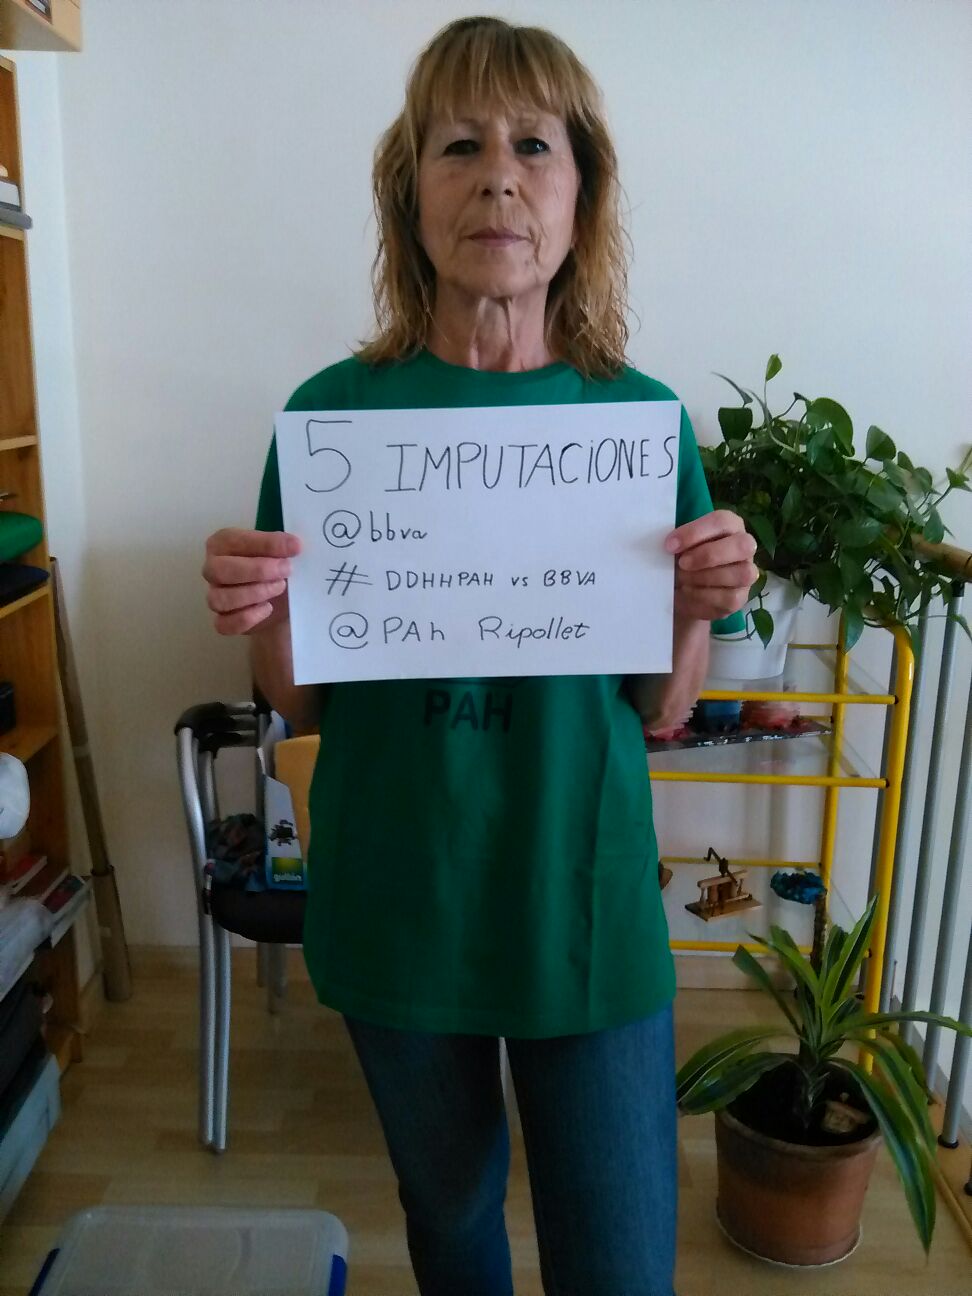 5 IMPUTACIONES
@bbva
# DDHHPAH vs BBVA
@PAh Ripollet
PAH